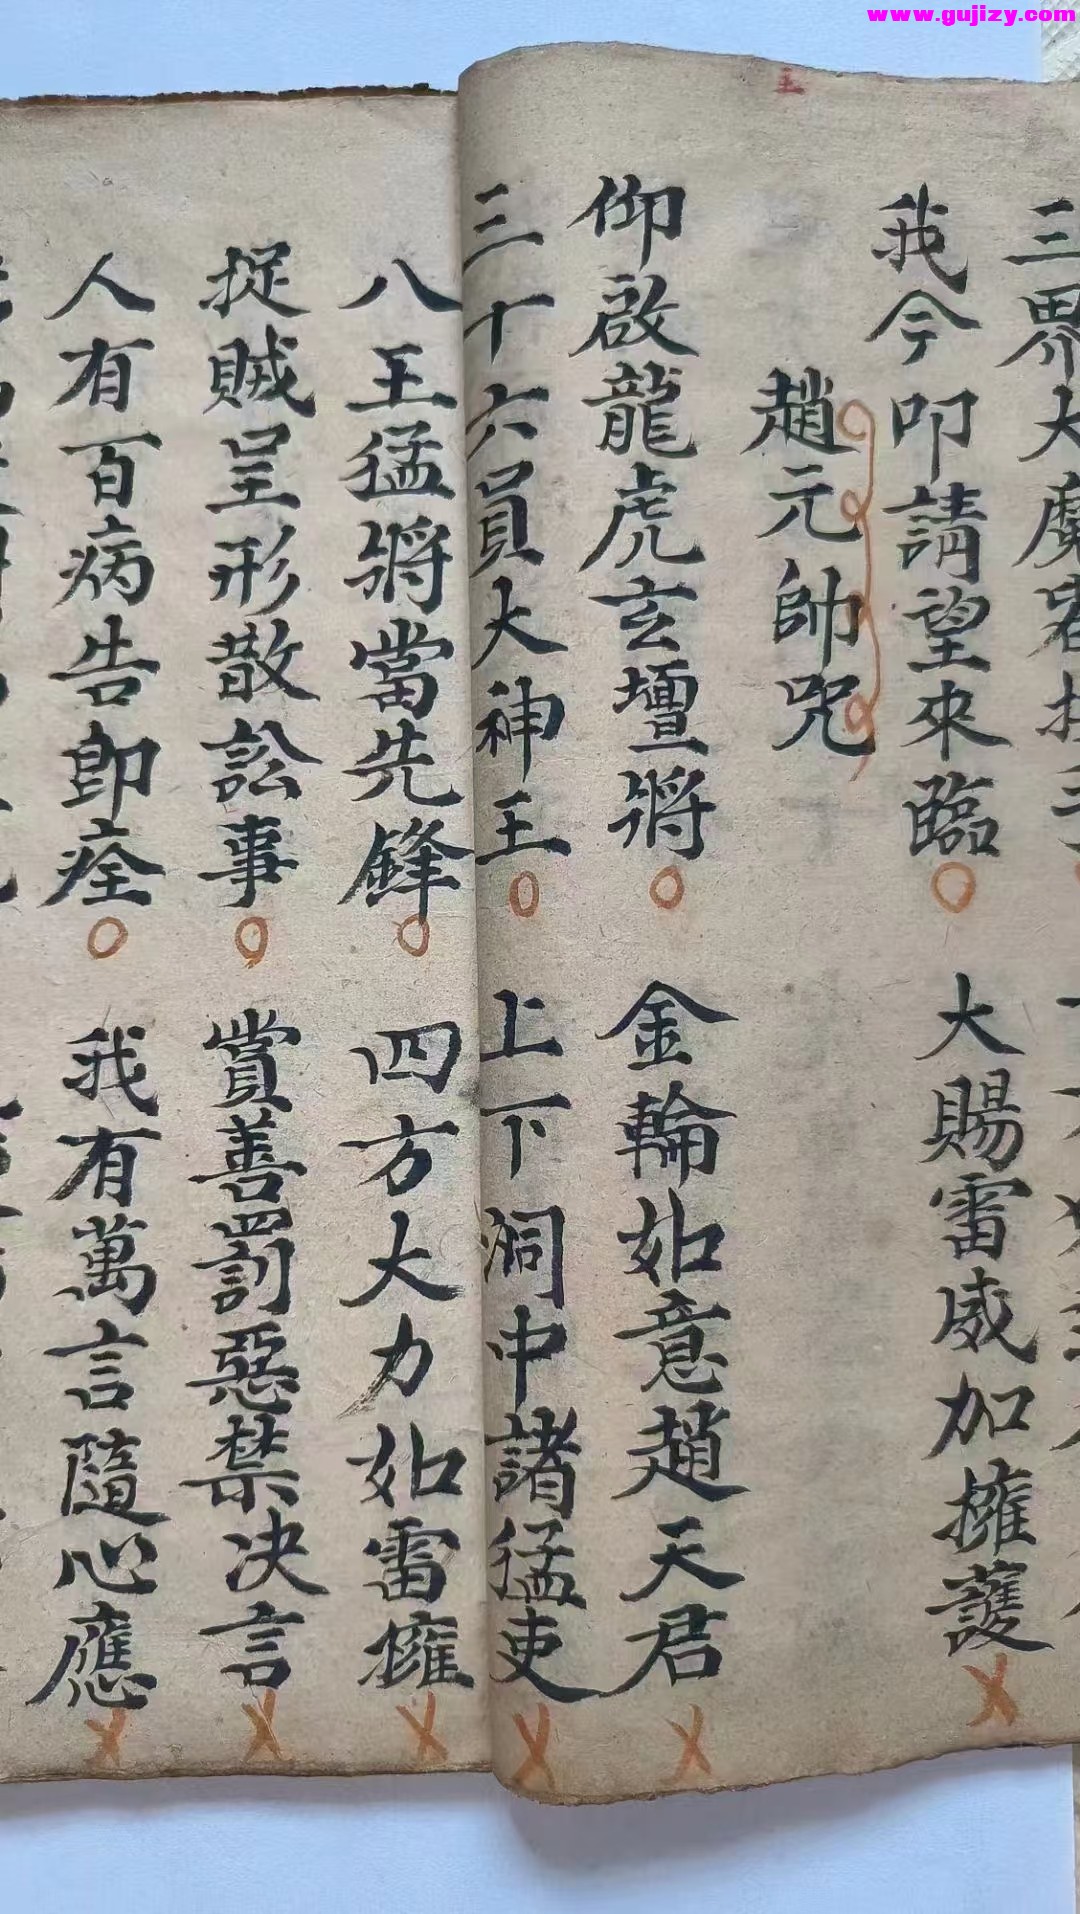 www.gujizy.com
三界大魔君
我今叩請望來臨 大賜雷威加擁護
趙元帥咒
仰啟龍虎玄壇將 金輪如意趙天君
三十六員大神王 上下洞中諸猛吏
八王猛將當先鋒 四方大力如雷擁
捉賊呈形散訟事 賞善罰惡禁决言
人有百病告即痊 我有萬言隨心應